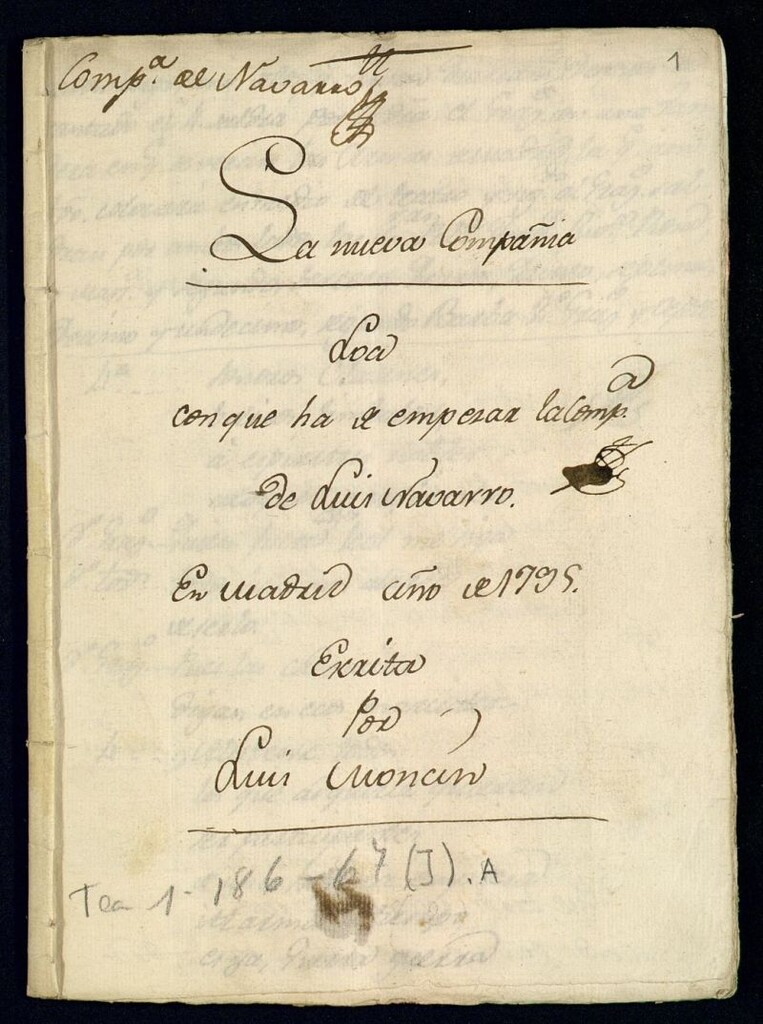 Comp.ª de Navarro
1
La nueva Compañia
Loa
con que ha de empezar la Comp.ª
de Luis Navarro.
En Madrid año de 1795.
Escrita
Por
Luis Moncin
Tea 1-186-67 (J).A